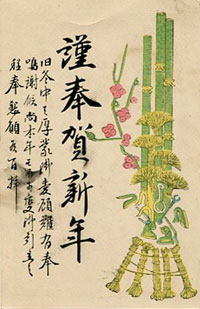 謹奉賀新年
旧冬中ハ厚蒙御愛顧難有奉
鳴謝候尚本年モ不変御引立之
程奉懇願候百拝